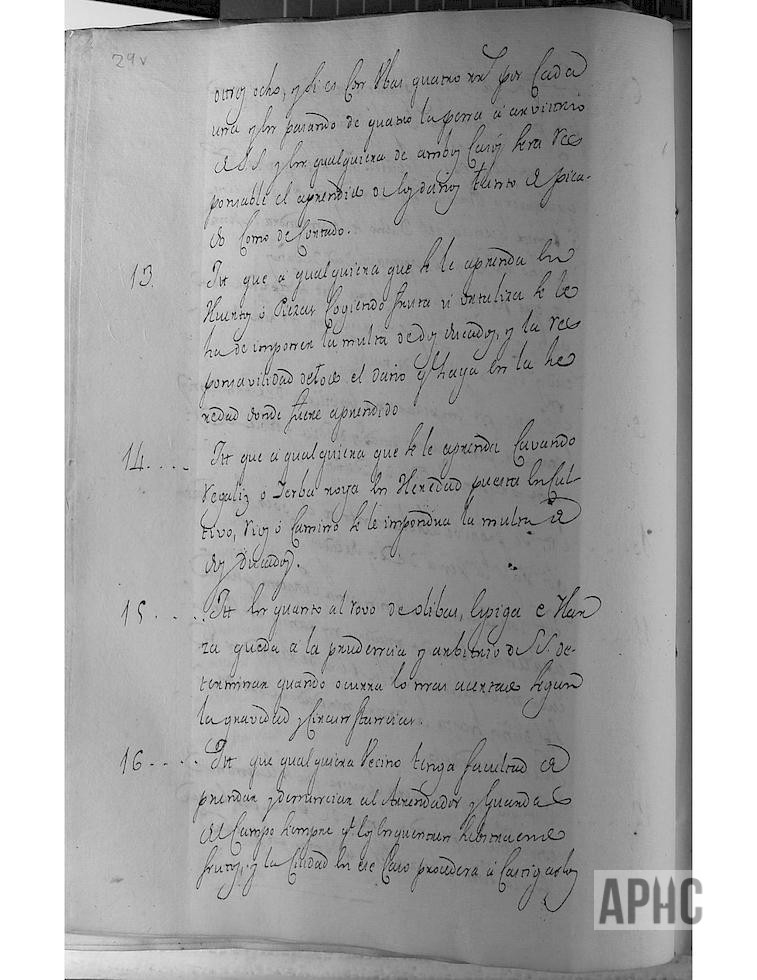 29v
otros ocho, y si es con Ubas quatro rs. por Cada
una y en pasando de quatro la perra a arvitrio
de S.S. y en qualquiera de ambos Casos sera res
ponsable el aprendido de los daños tanto de pica-
do como de Cortado.
13. Itt que a qualquiera que se le aprenda en
Huertos o Piezas Cogiendo fruta u ortaliza se le
ha de imponer la multa de dos ducados, y la res
ponsavilidad de todo el daño q.e haya en la he
redad donde fuere aprendido
14.... Itt que a qualquiera que se le aprenda Cavando
Regaliz o Ierba roya en Heredad puesta en Cul-
tivo, Rios o Camino se le impondra la multa de
dos Ducados.
15. .... Itt en quanto al rovo de olibas, Espiga e
za queda a la prudencia y arbitrio de S.S. de-
terminar quando ocurra lo mas acertado segun
la gravedad y Circunstancias.
16.... Itt que qualquiera Vecino tenga facultad de
prendar y denunciar al Arrendador y Guardas
del Campo siempre q.e los encuentren
frutos, y la Ciudad en ese Caso procedera a Castigarlos
APHC